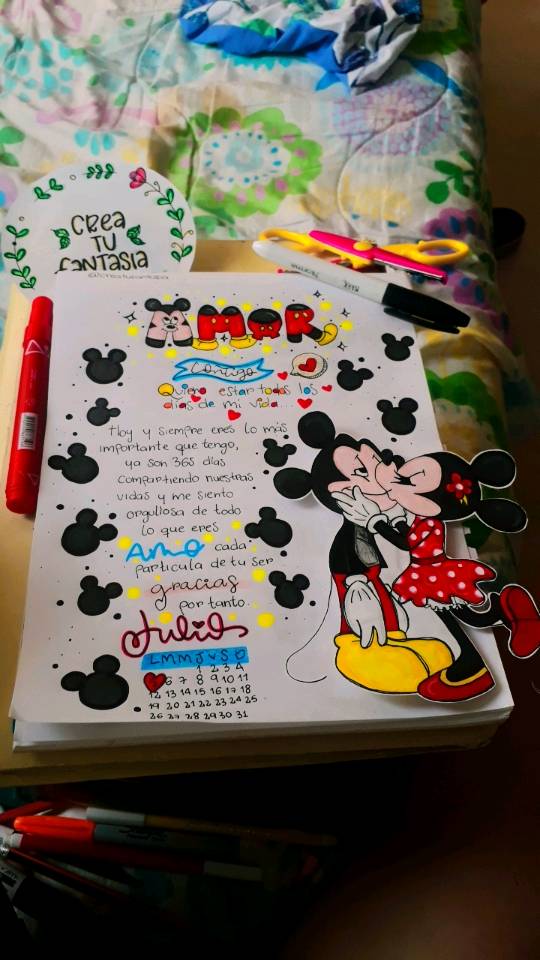 CREA
TU
FANTASIA
AMOR
Contigo
Quiero estar todos los
días de mi vida...
Hoy y siempre eres lo más
importante que tengo,
ya son 365 días
compartiendo nuestras
vidas y me siento
orgullosa de todo
lo que eres
Amo cada
partícula de tu ser
gracias
por tanto.
Julio
L M M J V S D
1 2 3 4
6 7 8 9 10 11
12 13 14 15 16 17 18
19 20 21 22 23 24 25
26 27 28 29 30 31